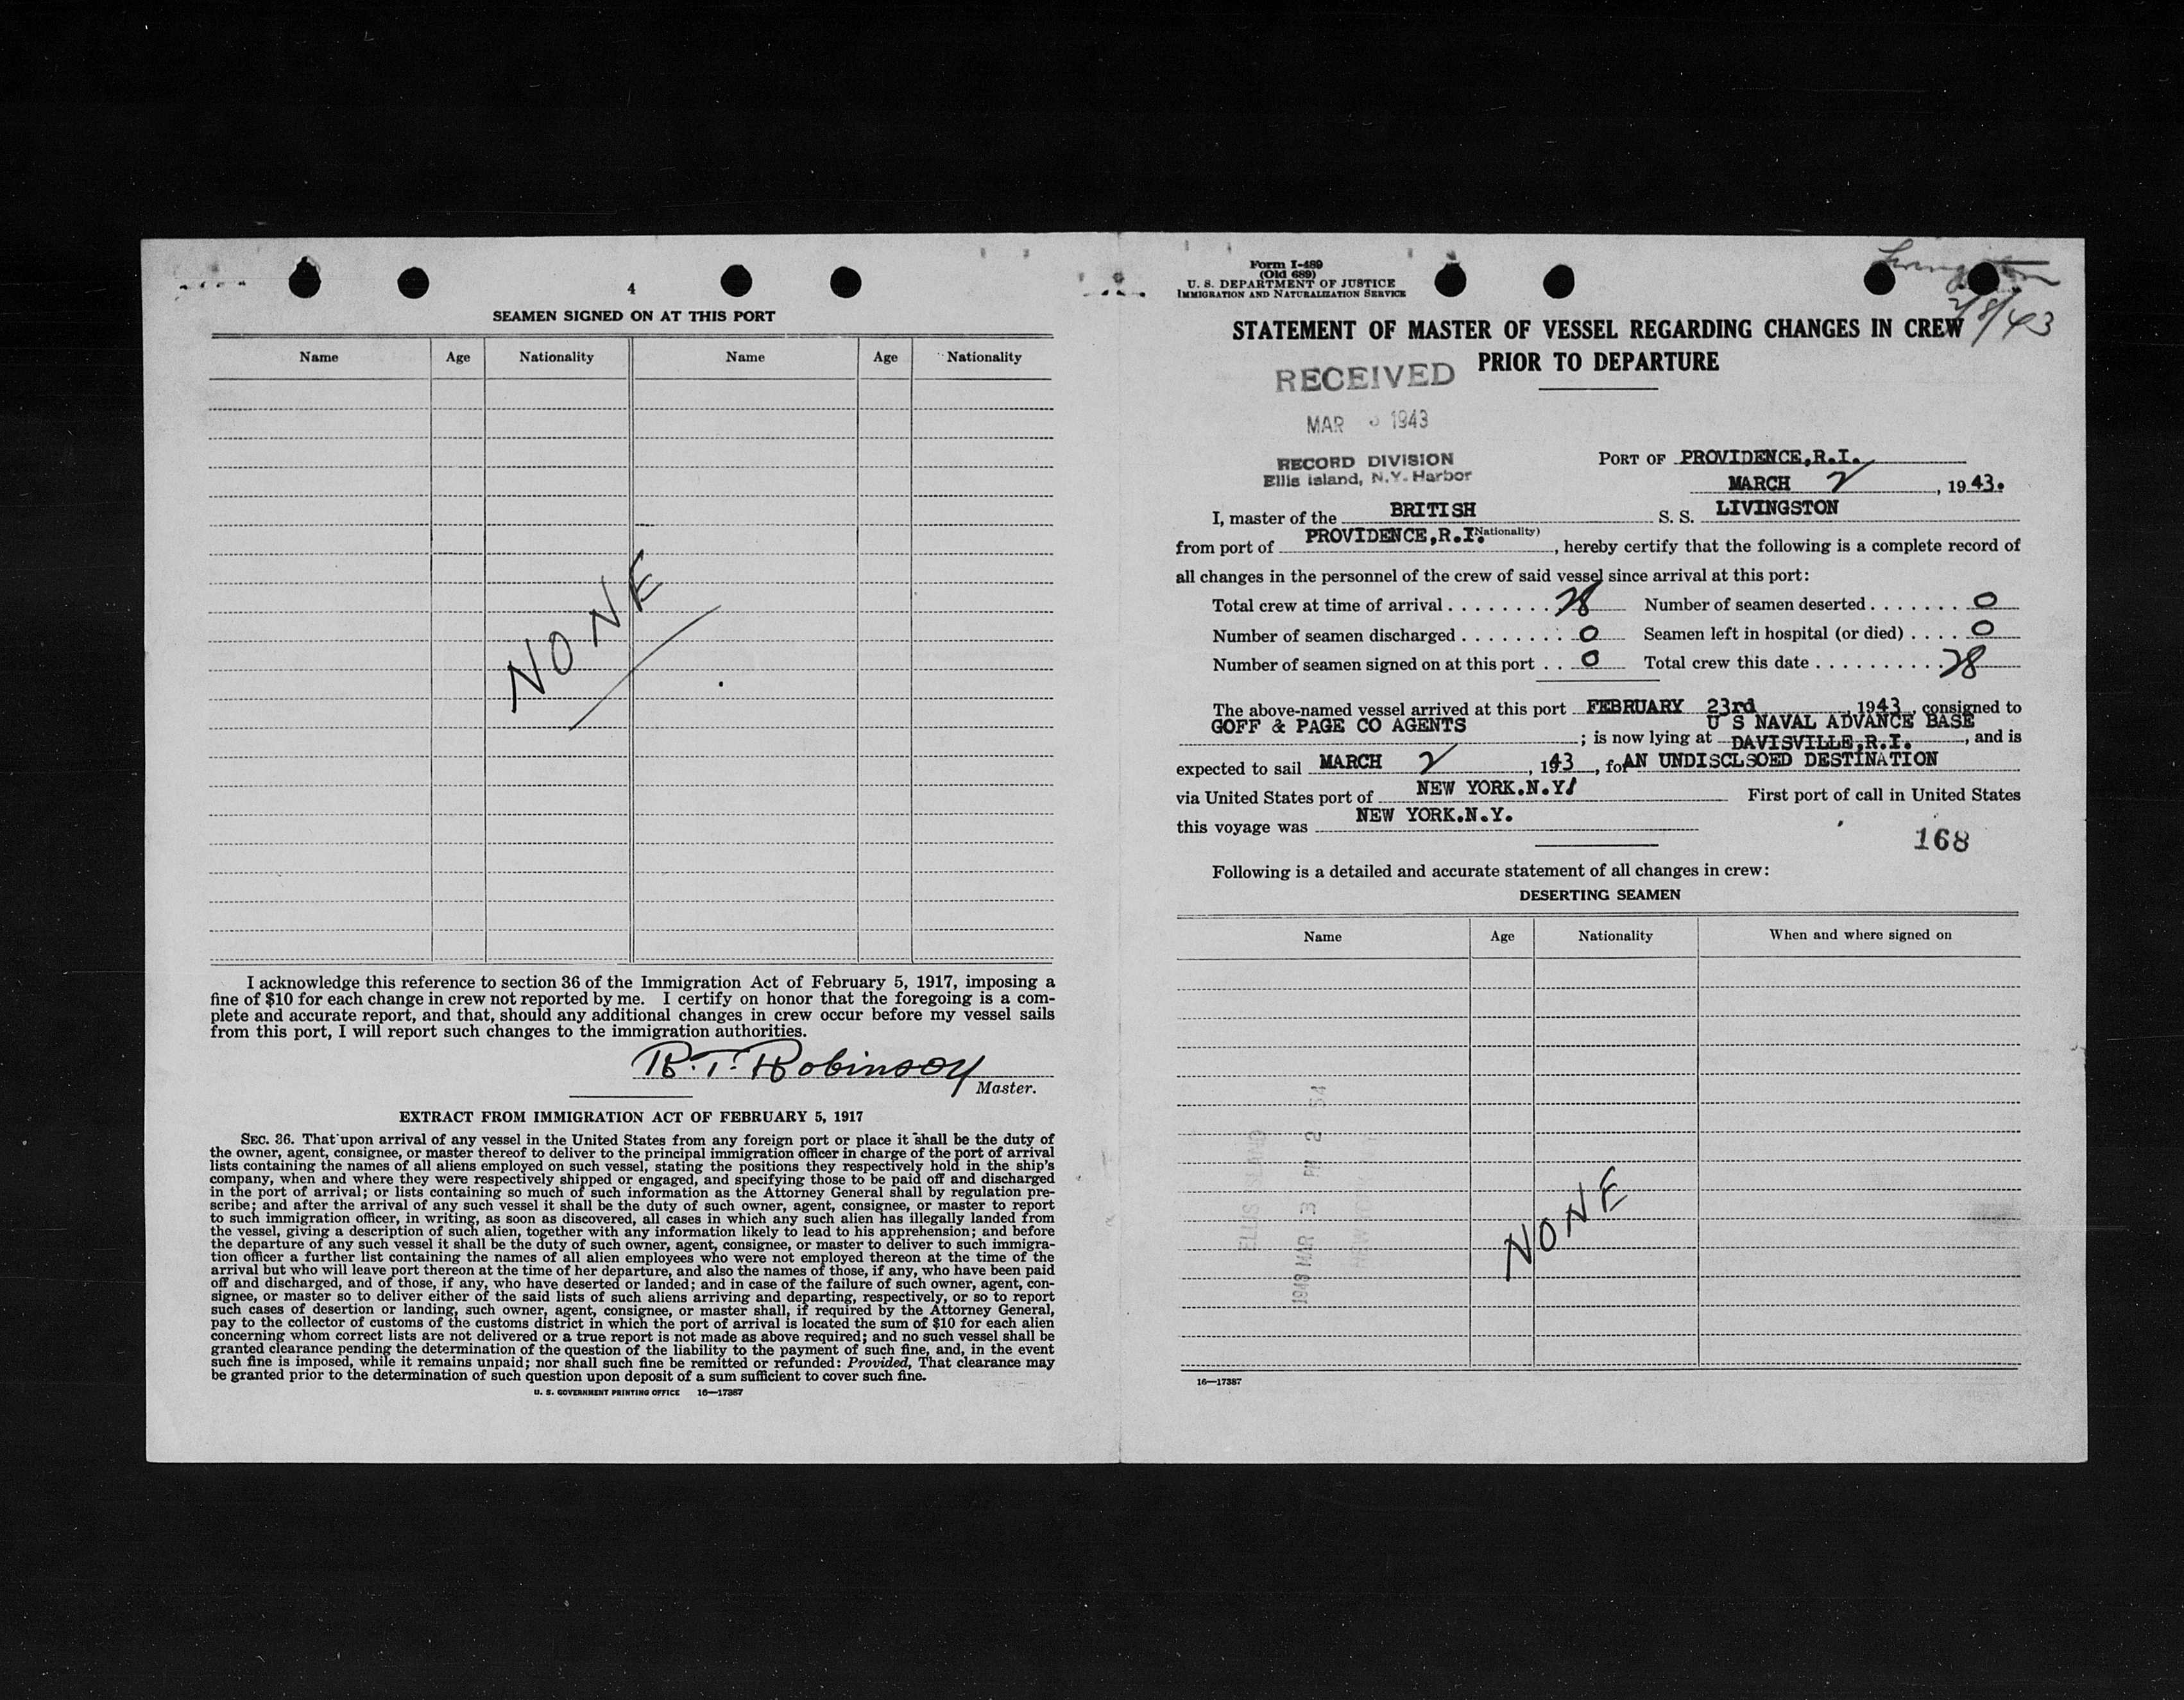 4
SEAMEN SIGNED ON AT THIS PORT
Name Age Nationality Name Age Nationality
NONE
I acknowledge this reference to section 36 of the Immigration Act of February 5, 1917, imposing a
fine of $10 for each change in crew not reported by me. I certify on honor that the foregoing is a com-
plete and accurate report, and that, should any additional changes in crew occur before my vessel sails
from this port, I will report such changes to the immigration authorities.
R.T. Robinson
Master.
EXTRACT FROM IMMIGRATION ACT OF FEBRUARY 5, 1917
SEC. 36. That upon arrival of any vessel in the United States from any foreign port or place it shall be the duty of
the owner, agent, consignee, or master thereof to deliver to the principal immigration officer in charge of the port of arrival
lists containing the names of all aliens employed on such vessel, stating the positions they respectively hold in the ship's
company, when and where they were respectively shipped or engaged, and specifying those to be paid off and discharged
in the port of arrival; or lists containing so much of such information as the Attorney General shall by regulation pre-
scribe; and after the arrival of any such vessel it shall be the duty of such owner, agent, consignee, or master to report
to such immigration officer, in writing, as soon as discovered, all cases in which any such alien has illegally landed from
the vessel, giving a description of such alien, together with any information likely to lead to his apprehension; and before
the departure of any such vessel it shall be the duty of such owner, agent, consignee, or master to deliver to such immigra-
tion officer a further list containing the names of all alien employees who were not employed thereon at the time of the
arrival but who will leave port thereon at the time of her departure, and also the names of those, if any, who have been paid
off and discharged, and of those, if any, who have deserted or landed; and in case of the failure of such owner, agent, con-
signee, or master so to deliver either of the said lists of such aliens arriving and departing, respectively, or so to report
such cases of desertion or landing, such owner, agent, consignee, or master shall, if required by the Attorney General,
pay to the collector of customs of the customs district in which the port of arrival is located the sum of $10 for each alien
concerning whom correct lists are not delivered or a true report is not made as above required; and no such vessel shall be
granted clearance pending the determination of the question of the liability to the payment of such fine, and, in the event
such fine is imposed, while it remains unpaid; nor shall such fine be remitted or refunded: Provided, That clearance may
be granted prior to the determination of such question upon deposit of a sum sufficient to cover such fine.
U. S. GOVERNMENT PRINTING OFFICE 16—17387
Form I-489
(Old 689)
U. S. DEPARTMENT OF JUSTICE
IMMIGRATION AND NATURALIZATION SERVICE
Livingston
2/8/43
STATEMENT OF MASTER OF VESSEL REGARDING CHANGES IN CREW
PRIOR TO DEPARTURE
RECEIVED
MAR 1943
RECORD DIVISION
Ellis Island, N.Y. Harbor
PORT OF PROVIDENCE,R.I.
MARCH 2, 1943.
I, master of the BRITISH S. S. LIVINGSTON
(Nationality)
from port of PROVIDENCE,R.I., hereby certify that the following is a complete record of
all changes in the personnel of the crew of said vessel since arrival at this port:
Total crew at time of arrival . . . . . . . . 28 Number of seamen deserted . . . . . . . 0
Number of seamen discharged . . . . . . . . 0 Seamen left in hospital (or died) . . . . 0
Number of seamen signed on at this port . . 0 Total crew this date . . . . . . . . . . 28
The above-named vessel arrived at this port FEBRUARY 23rd, 1943, consigned to
GOFF & PAGE CO AGENTS U S NAVAL ADVANCE BASE
; is now lying at DAVISVILLE,R.I., and is
expected to sail MARCH 2, 1943, for AN UNDISCLSOED DESTINATION
via United States port of NEW YORK.N.Y. First port of call in United States
this voyage was NEW YORK.N.Y.
168
Following is a detailed and accurate statement of all changes in crew:
DESERTING SEAMEN
Name Age Nationality When and where signed on
ELLIS ISLAND
1943 MAR 3 PM 2 54
NONE
16—17387